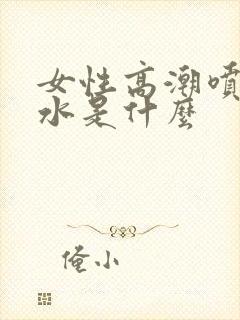 女性高潮噴
水是什麼
俺小